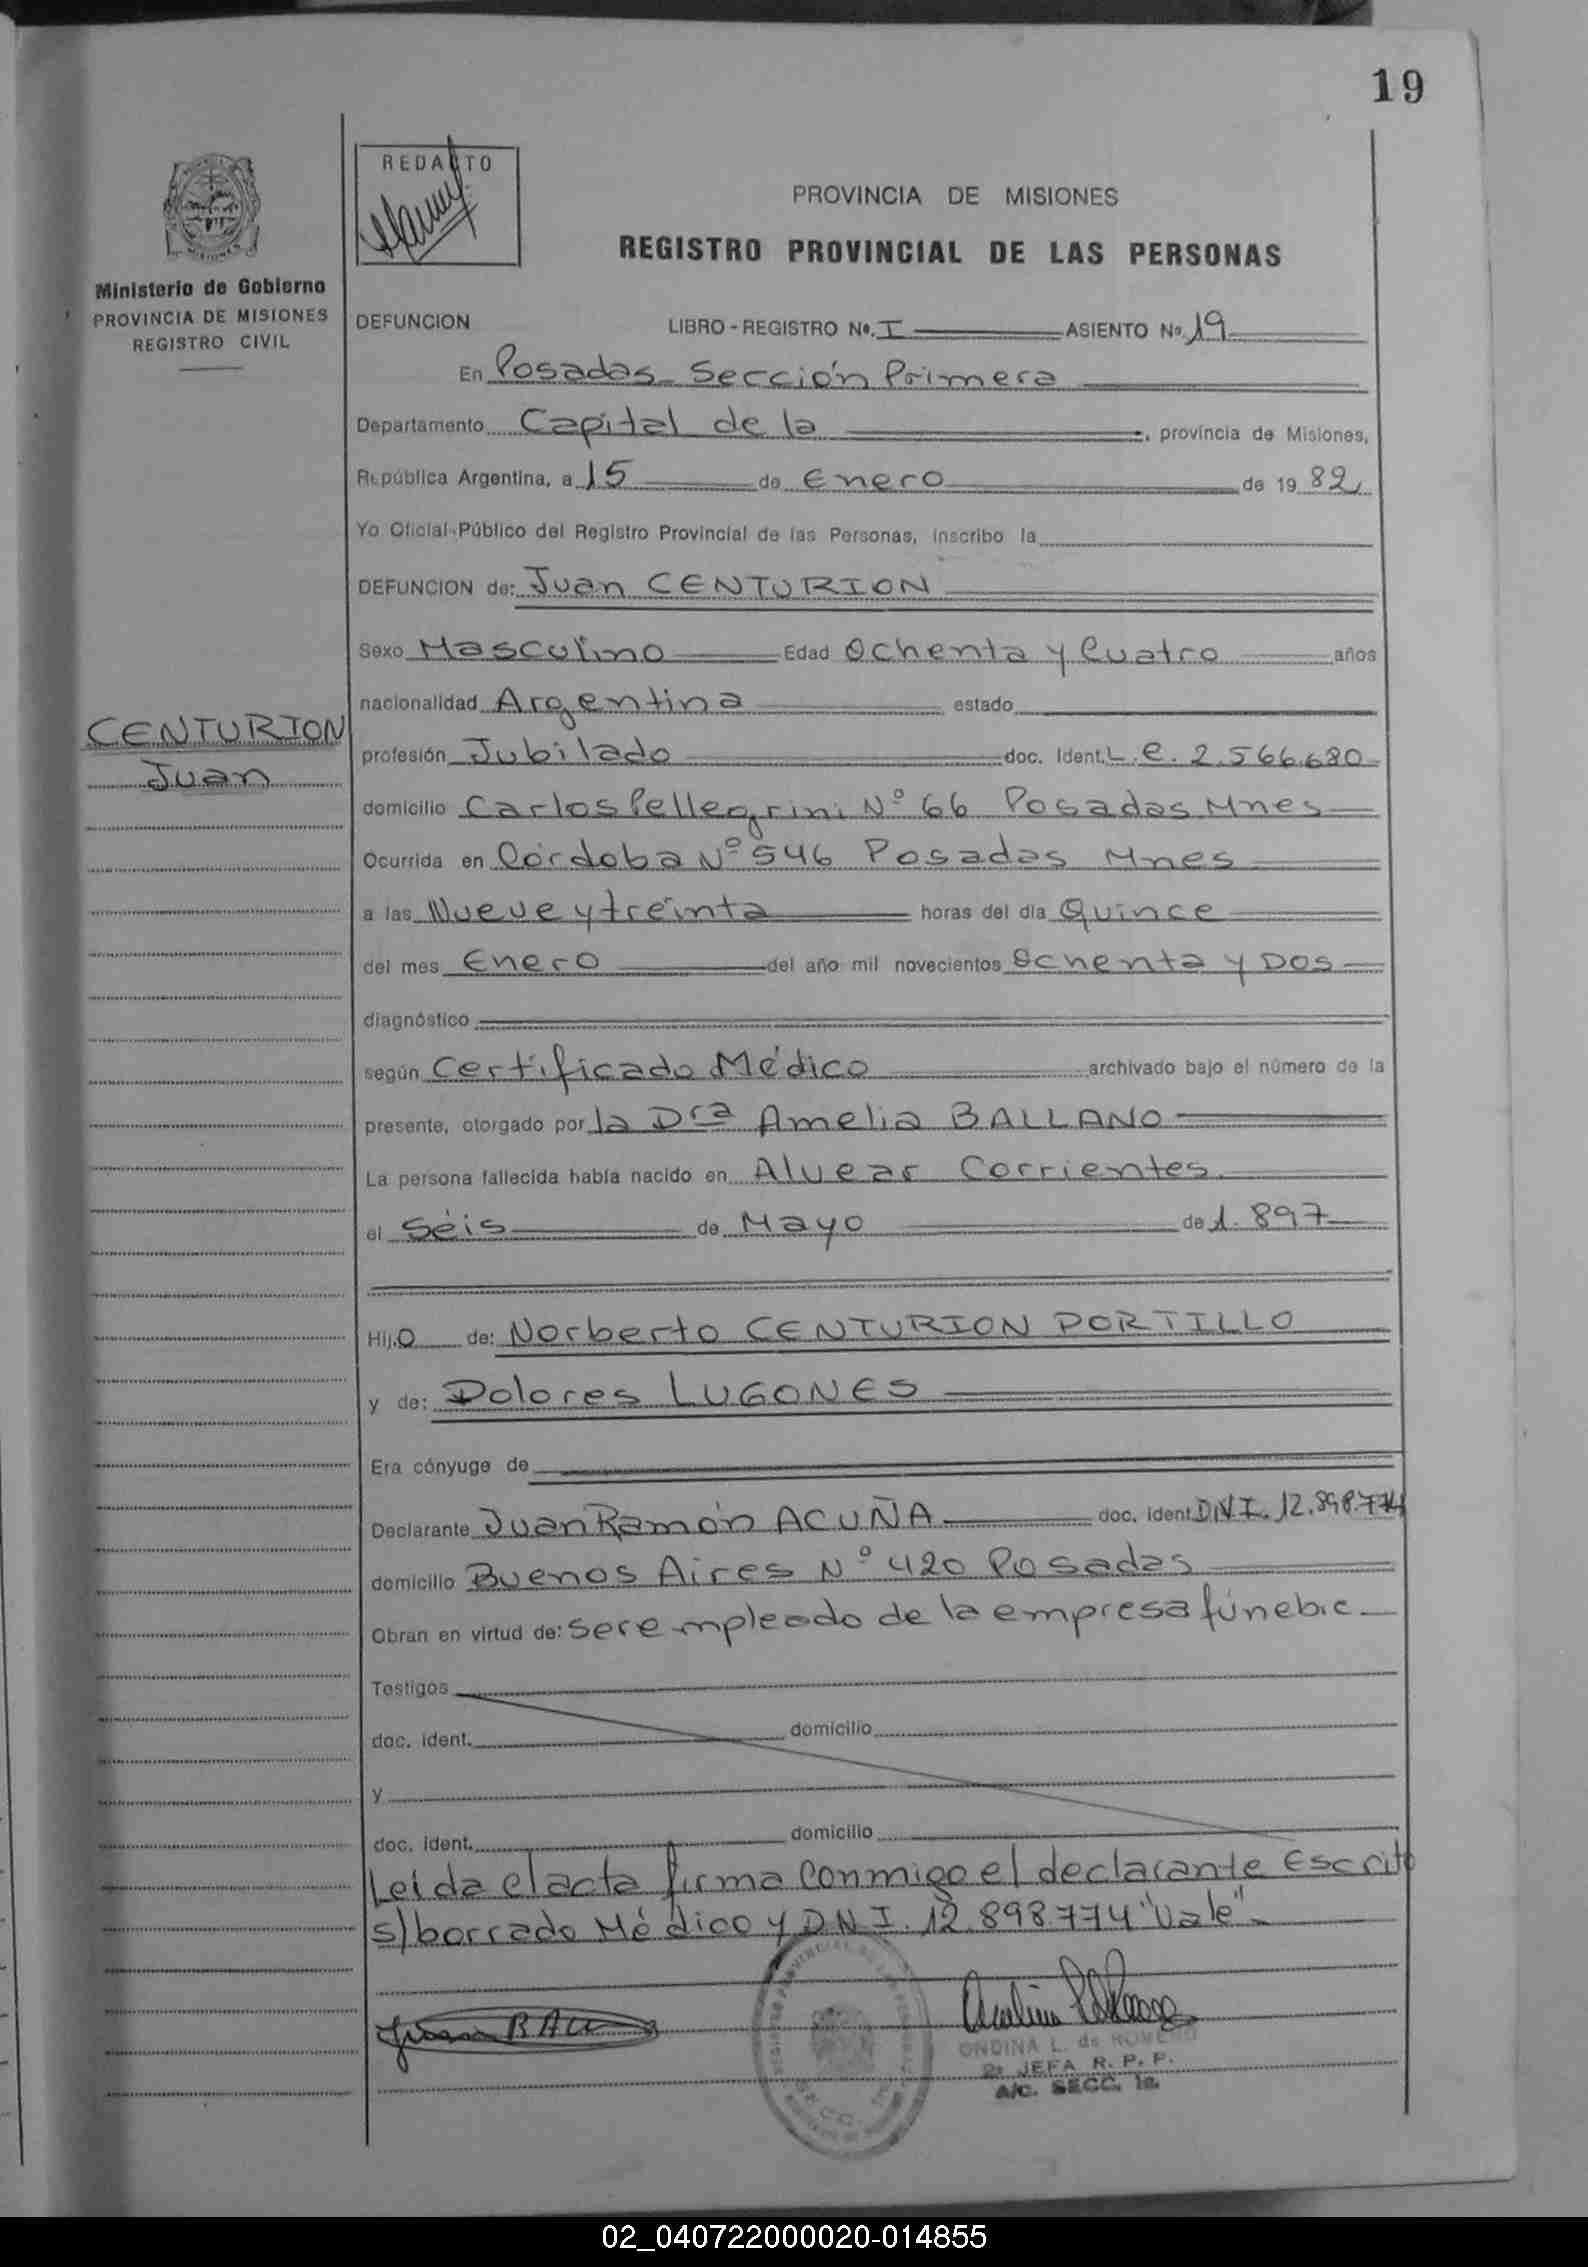 19
REDACTO
PROVINCIA DE MISIONES
REGISTRO PROVINCIAL DE LAS PERSONAS
MISIONES
Ministerio de Gobierno
PROVINCIA DE MISIONES
REGISTRO CIVIL
DEFUNCION LIBRO - REGISTRO Nº. I ASIENTO Nº. 19
En Posadas Sección Primera
Departamento Capital de la , provincia de Misiones,
República Argentina, a 15 de Enero de 19 82
Yo Oficial-Público del Registro Provincial de las Personas, inscribo la
DEFUNCION de: Juan CENTURION
Sexo Masculino Edad Ochenta y Cuatro años
nacionalidad Argentina estado
CENTURION
Juan
profesión Jubilado doc. Ident. L.e. 2.566.680
domicilio Carlos Pellegrini Nº 66 Posadas Mnes
Ocurrida en Córdoba Nº 546 Posadas Mnes
a las Nueve y treinta horas del día Quince
del mes Enero del año mil novecientos Ochenta y Dos
diagnóstico
según Certificado Médico archivado bajo el número de la
presente, otorgado por la Dra Amelia BALLANO
La persona fallecida había nacido en Alvear Corrientes
el Séis de Mayo de 1.897
Hij.o de: Norberto CENTURION PORTILLO
y de: Dolores LUGONES
Era cónyuge de
Declarante Juan Ramón ACUÑA doc. ident. D.N.I. 12.898.774
domicilio Buenos Aires Nº 420 Posadas
Obran en virtud de: ser empleado de la empresa fúnebre
Testigos
doc. ident. domicilio
y
doc. ident. domicilio
Leida el acta firma Conmigo el declarante Escrito
s/borrado Médico y D.N.I. 12.898.774 "Vale"
ONDINA L. de ROMERO
2ª JEFA R. P. P.
A/C. SECC. 1a.
02_040722000020-014855